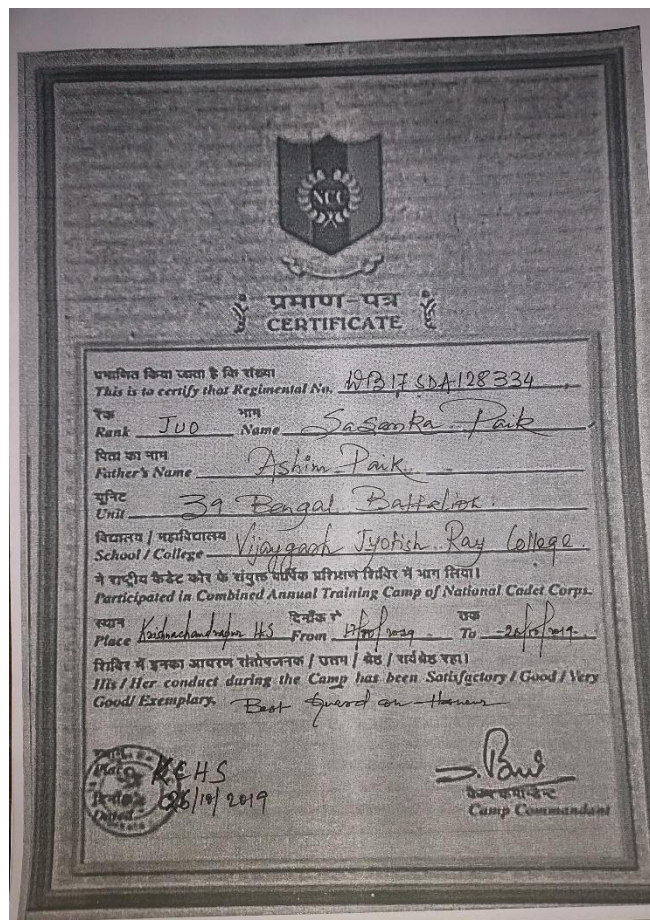 NCC
प्रमाण-पत्र
CERTIFICATE
प्रमाणित किया जाता है कि संख्या
This is to certify that Regimental No. WB17SDA128334
रैंक नाम
Rank JUO Name Sasanka Paik
पिता का नाम
Father's Name Ashim Paik
यूनिट
Unit 39 Bengal Battalion
विद्यालय / महाविद्यालय
School / College Vijaygarh Jyotish Ray College
ने राष्ट्रीय कैडेट कोर के संयुक्त वार्षिक प्रशिक्षण शिविर में भाग लिया।
Participated in Combined Annual Training Camp of National Cadet Corps.
स्थान दिनाँक से तक
Place Krishnachandrapur HS From To
शिविर में इनका आचरण संतोषजनक / उत्तम / श्रेष्ठ / सर्वश्रेष्ठ रहा।
His / Her conduct during the Camp has been Satisfactory / Good / Very
Good / Exemplary. Best Guard on Honour
KCHS
26/10/2019
Dated
कैम्प कमान्डेन्ट
Camp Commandant